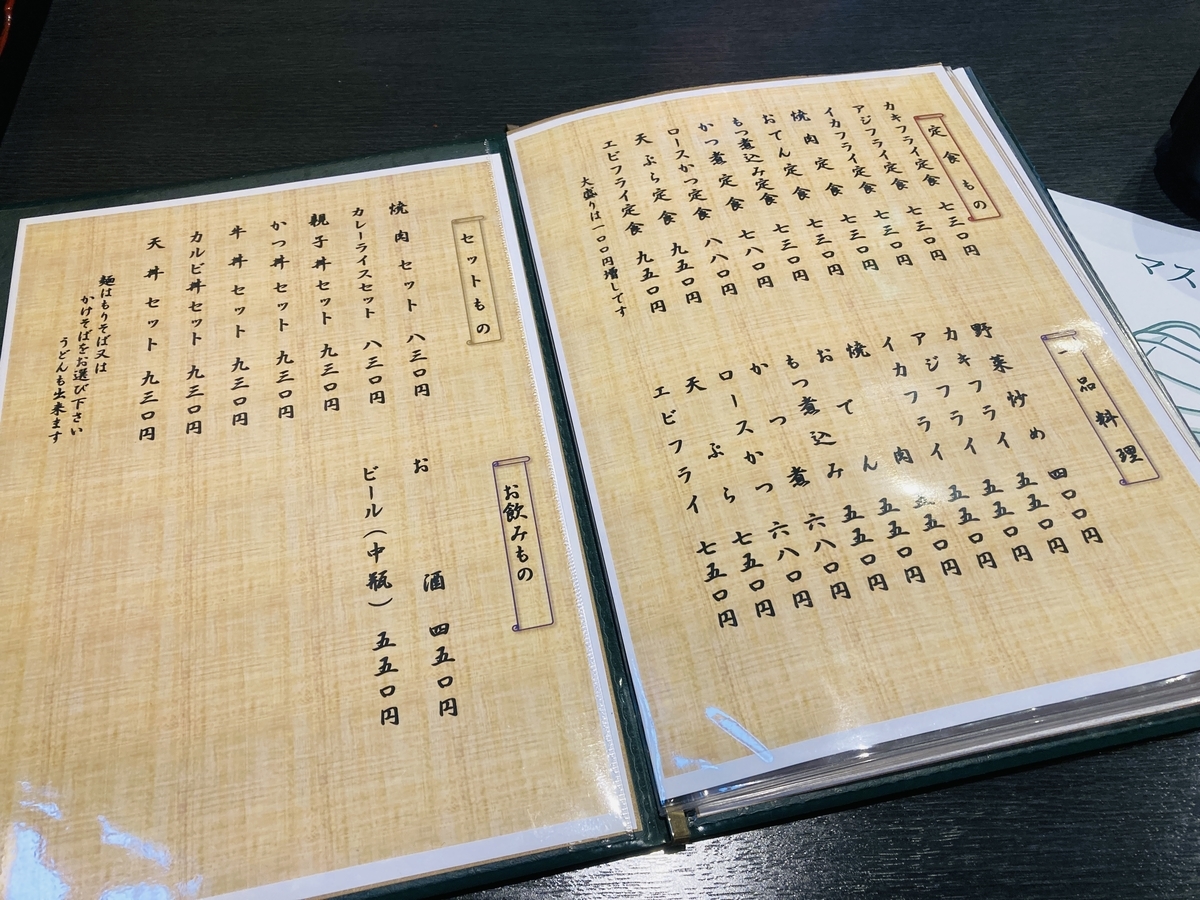 定食もの
カキフライ定食 七三〇円
アジフライ定食 七三〇円
イカフライ定食 七三〇円
焼肉定食 七三〇円
おでん定食 七三〇円
もつ煮込み定食 七三〇円
かつ煮定食 七八〇円
ロースかつ定食 八八〇円
天ぷら定食 九五〇円
エビフライ定食 九五〇円
大盛りは一〇〇円増しです
一品料理
野菜炒め 四〇〇円
カキフライ 五五〇円
アジフライ 五五〇円
イカフライ 五五〇円
焼肉 五五〇円
おでん 五五〇円
もつ煮込み 五五〇円
かつ煮 六八〇円
ロースかつ 六八〇円
天ぷら 七五〇円
エビフライ 七五〇円
セットもの
焼肉セット 八三〇円
カレーライスセット 八三〇円
親子丼セット 九三〇円
かつ丼セット 九三〇円
牛丼セット 九三〇円
カルビ丼セット 九三〇円
天丼セット 九三〇円
麺はもりそば又は
かけそばをお選び下さい
うどんも出来ます
お飲みもの
お酒 四五〇円
ビール(中瓶) 五五〇円
マス